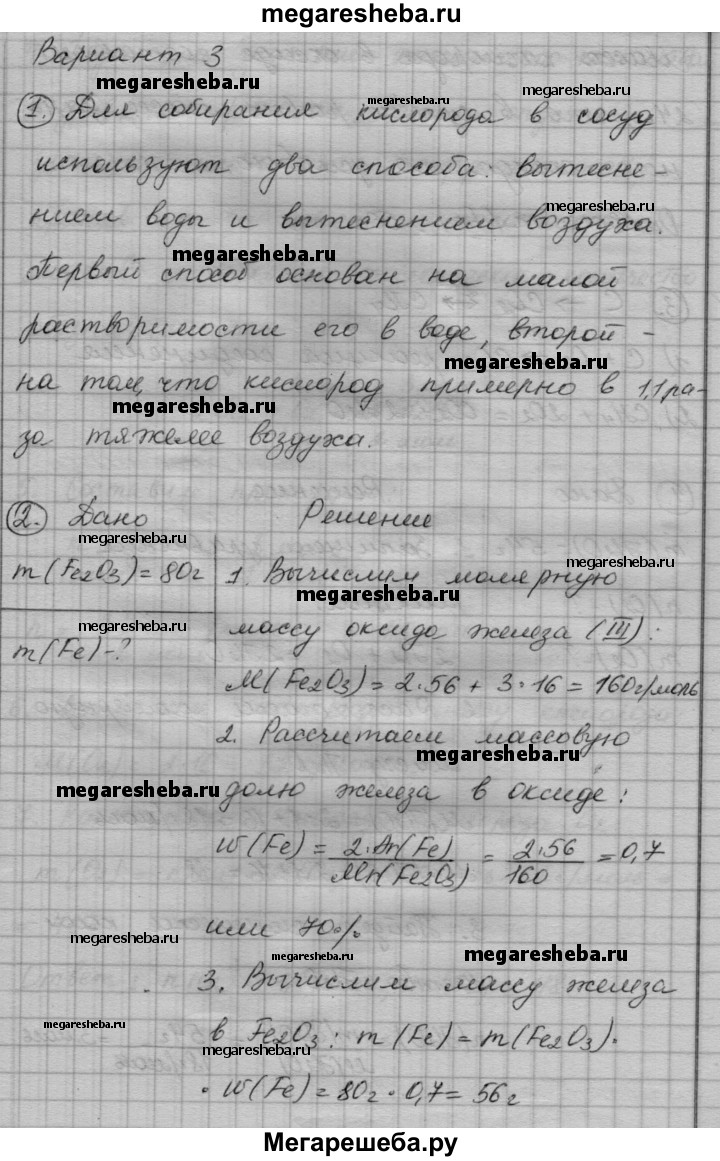 megaresheba.ru
Вариант 3
megaresheba.ru
megaresheba.ru
1. Для собирания кислорода в сосуд
используют два способа: вытесне-
megaresheba.ru
нием воды и вытеснением воздуха.
megaresheba.ru
Первый способ основан на малой
растворимости его в воде, второй -
megaresheba.ru
на том, что кислород примерно в 1,1 ра-
megaresheba.ru
за тяжелее воздуха.
2. Дано Решение
megaresheba.ru
megaresheba.ru
m(Fe2O3)=80г 1. Вычислим молярную
megaresheba.ru
megaresheba.ru
массу оксида железа (III):
m(Fe)-?
M(Fe2O3)=2·56+3·16=160г/моль
2. Рассчитаем массовую
megaresheba.ru
megaresheba.ru
долю железа в оксиде:
W(Fe) = 2·Ar(Fe) / Mr(Fe2O3) = 2·56 / 160 = 0,7
или 70%
megaresheba.ru
megaresheba.ru
3. Вычислим массу железа
megaresheba.ru
в Fe2O3: m(Fe)=m(Fe2O3)·
megaresheba.ru
· W(Fe)=80г·0,7=56г
Мегарешеба.ру